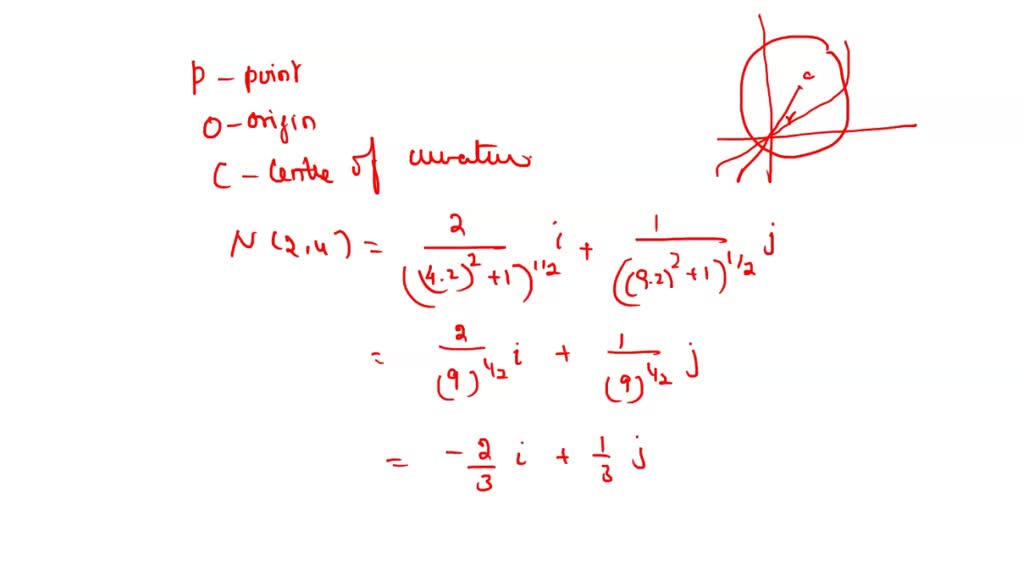 P - point
O - origin
C - Centre of curvature
C
r
N(2,4) = 2/((4.2)^2 + 1)^1/2 i + 1/((9.2)^2 + 1)^1/2 j
= 2/(9)^1/2 i + 1/(9)^1/2 j
= - 2/3 i + 1/3 j